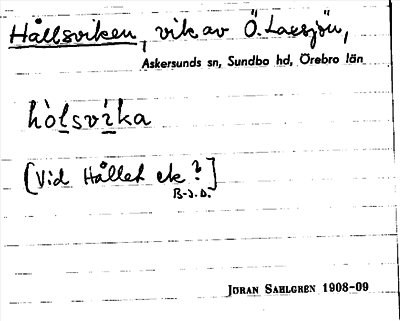 Hållsviken, vik av Ö. Laxsjön,
Askersunds sn, Sundbo hd, Örebro län
hòlsvìka
[Vid Hållet ek?]
B-d.D.
JÖRAN SAHLGREN 1908-09